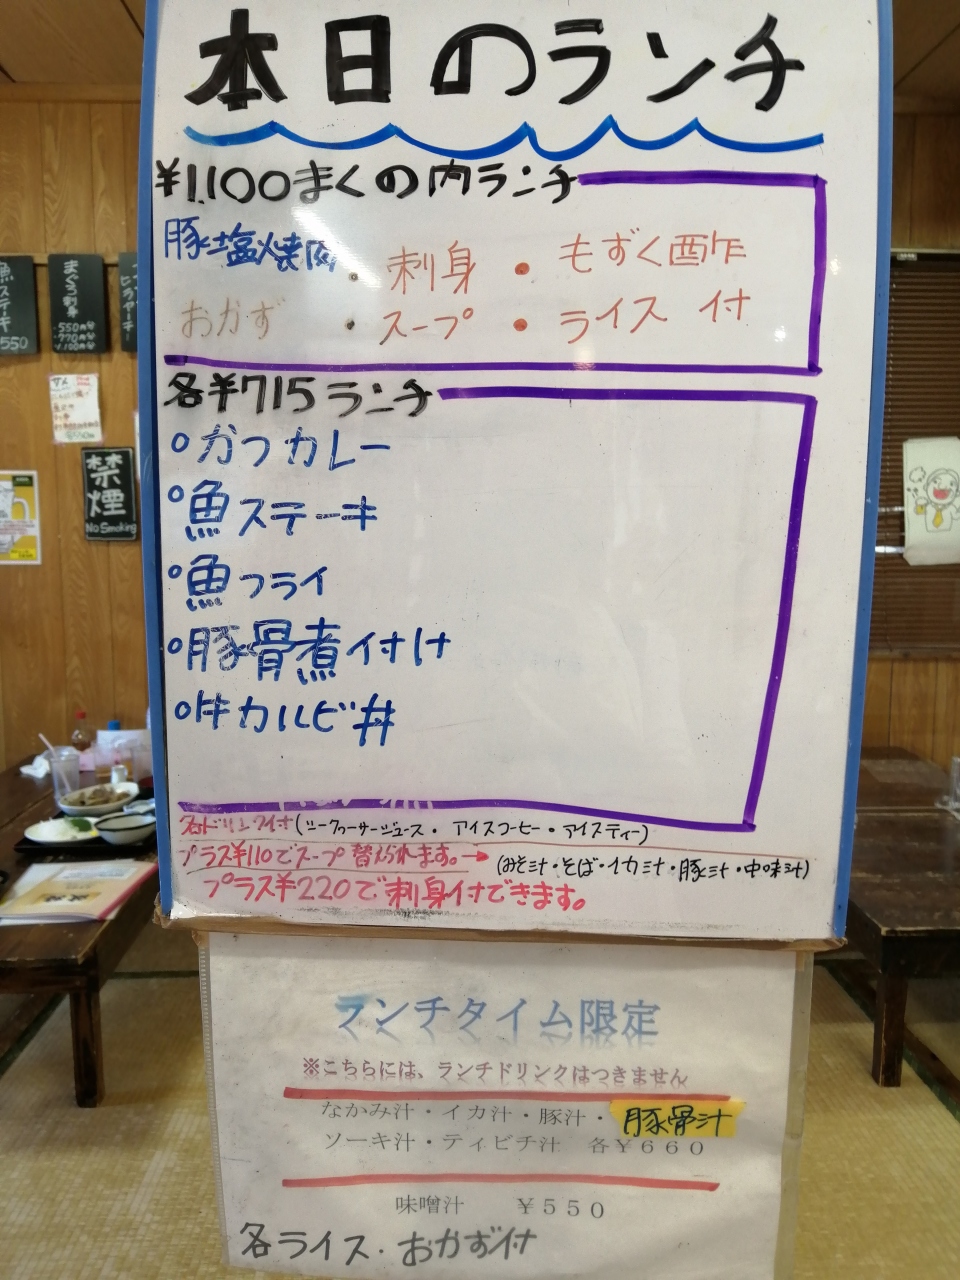 本日のランチ
¥1.100まくの内ランチ
豚塩焼肉・刺身・もずく酢
おかず・スープ・ライス付
各¥715ランチ
○カツカレー
○魚ステーキ
○魚フライ
○豚骨煮付け
○牛カルビ丼
各ドリンク付(シークヮーサージュース・アイスコーヒー・アイスティー)
プラス¥110でスープ替えられます。→(みそ汁・そば・イカ汁・豚汁・中味汁)
プラス¥220で刺身付できます。
ランチタイム限定
※こちらには、ランチドリンクはつきません
なかみ汁・イカ汁・豚汁・豚骨汁
ソーキ汁・ティビチ汁 各¥660
味噌汁 ¥550
各ライス・おかず付
魚ステーキ
550
まぐろ刺身
550円
770円
1,100円
禁煙
No Smoking